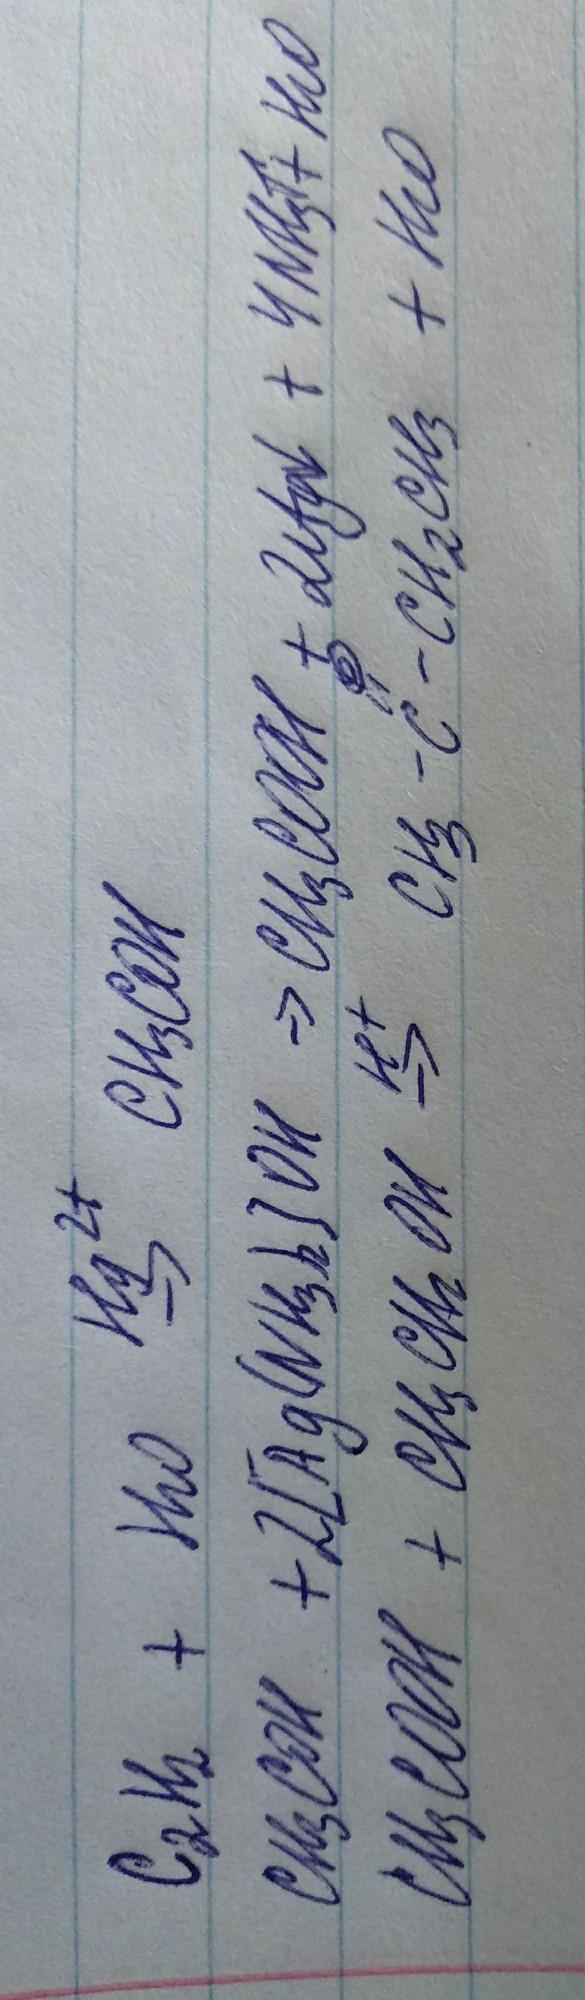 C₂H₂ + H₂O Hg²⁺→ CH₃COH
CH₃COH + 2[Ag(NH₃)₂]OH → CH₃COOH + 2Ag↓ + 4NH₃↑ + H₂O
CH₃COOH + CH₃CH₂OH H⁺→ CH₃ - C(=O) - CH₂CH₃ + H₂O